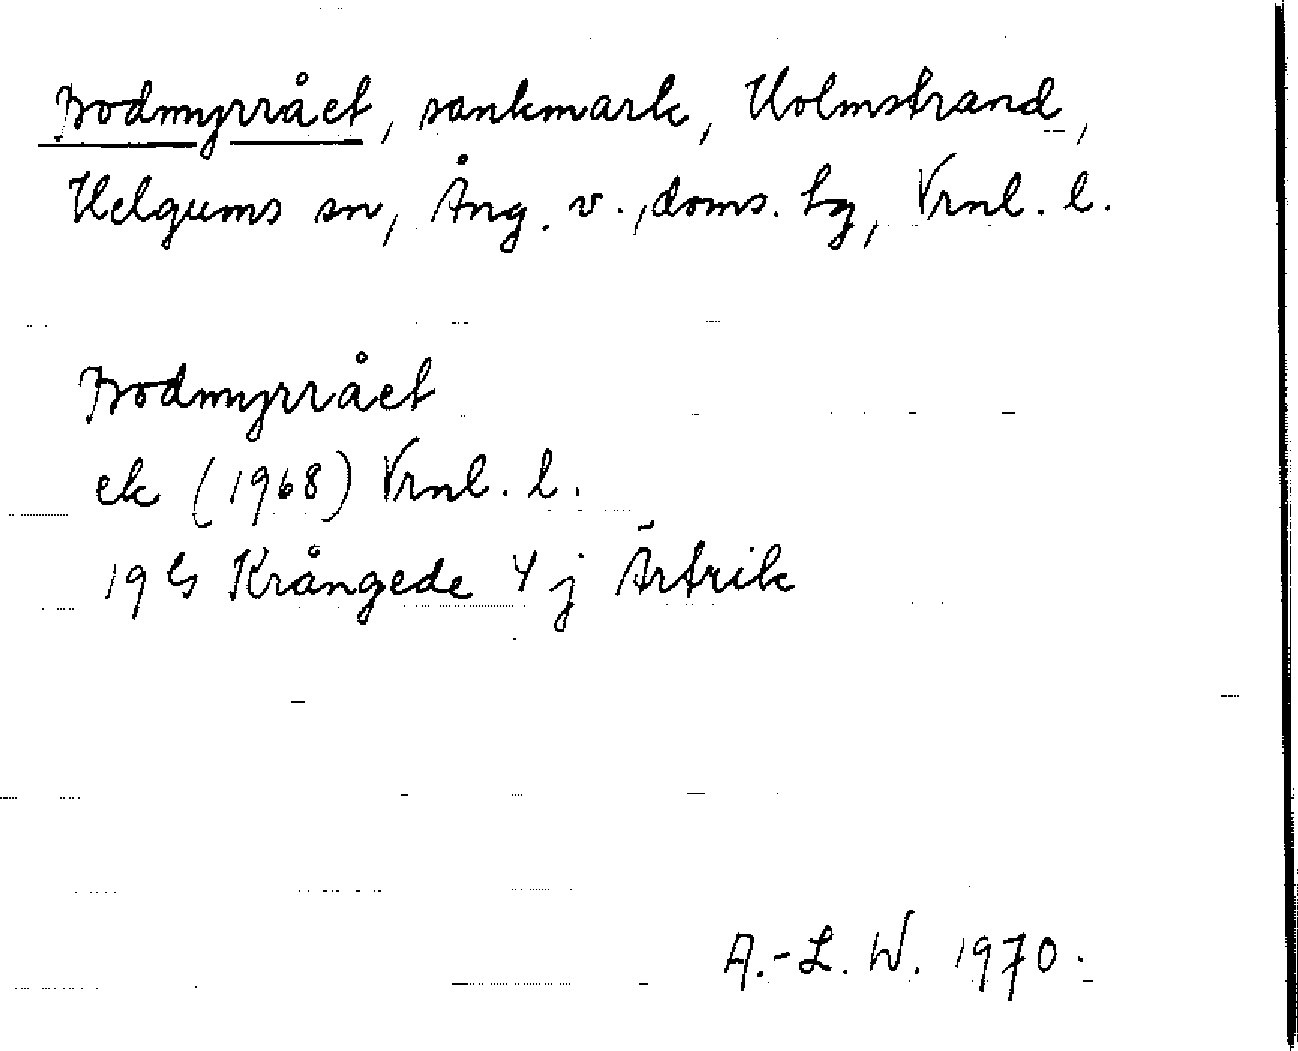 Bodmyrrået, sankmark, Holmstrand,
Helgums sn, Ång. v., doms. hg, Vrnl. l.
Bodmyrrået
ek (1968) Vrnl. l.
19 G Krångede 4 j Ärtrik
A.-L. W. 1970.